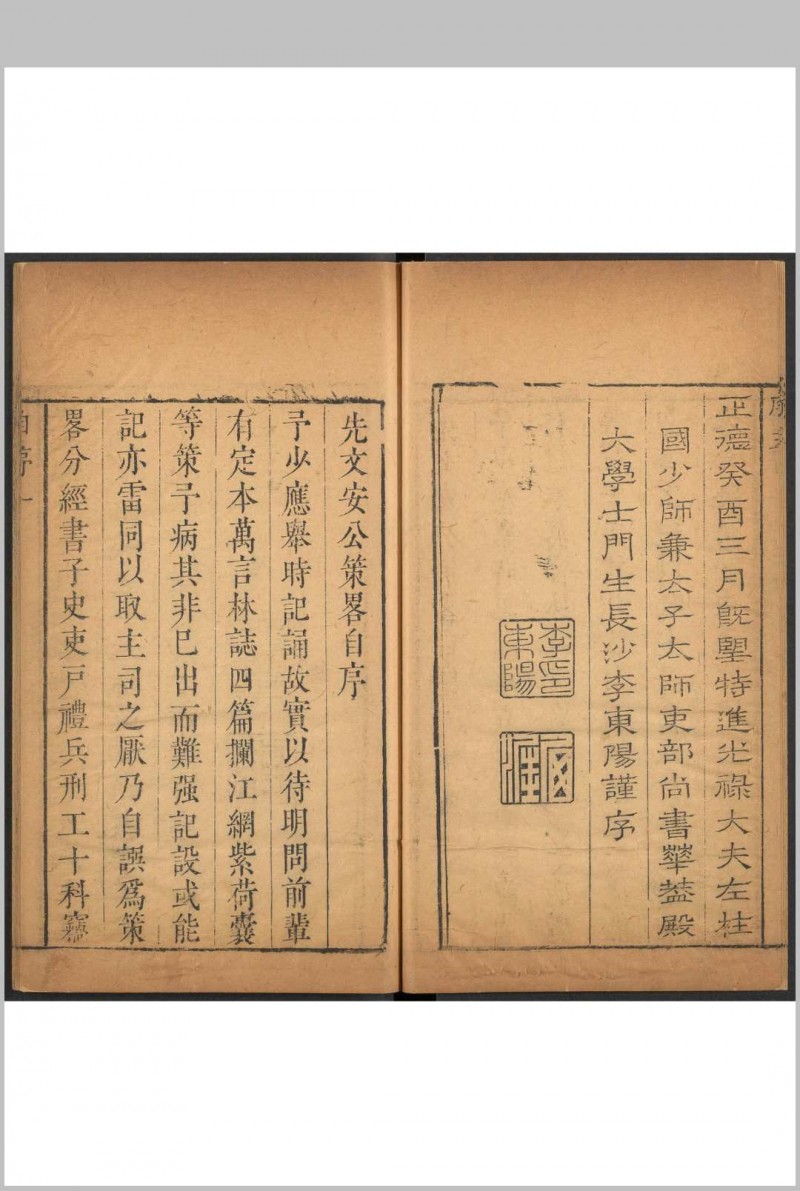 正德癸酉三月既朢特進光祿大夫左柱
國少師兼太子太師吏部尚書華蓋殿
大學士門生長沙李東陽謹序
李東陽印
先文安公策畧自序
予少應舉時記誦故實以待明問前輩
有定本萬言林誌四篇攔江網紫荷囊
等策予病其非巳出而難强記設或能
記亦雷同以取主司之厭乃自譔為策
畧分經書子史吏戸禮兵刑工十科